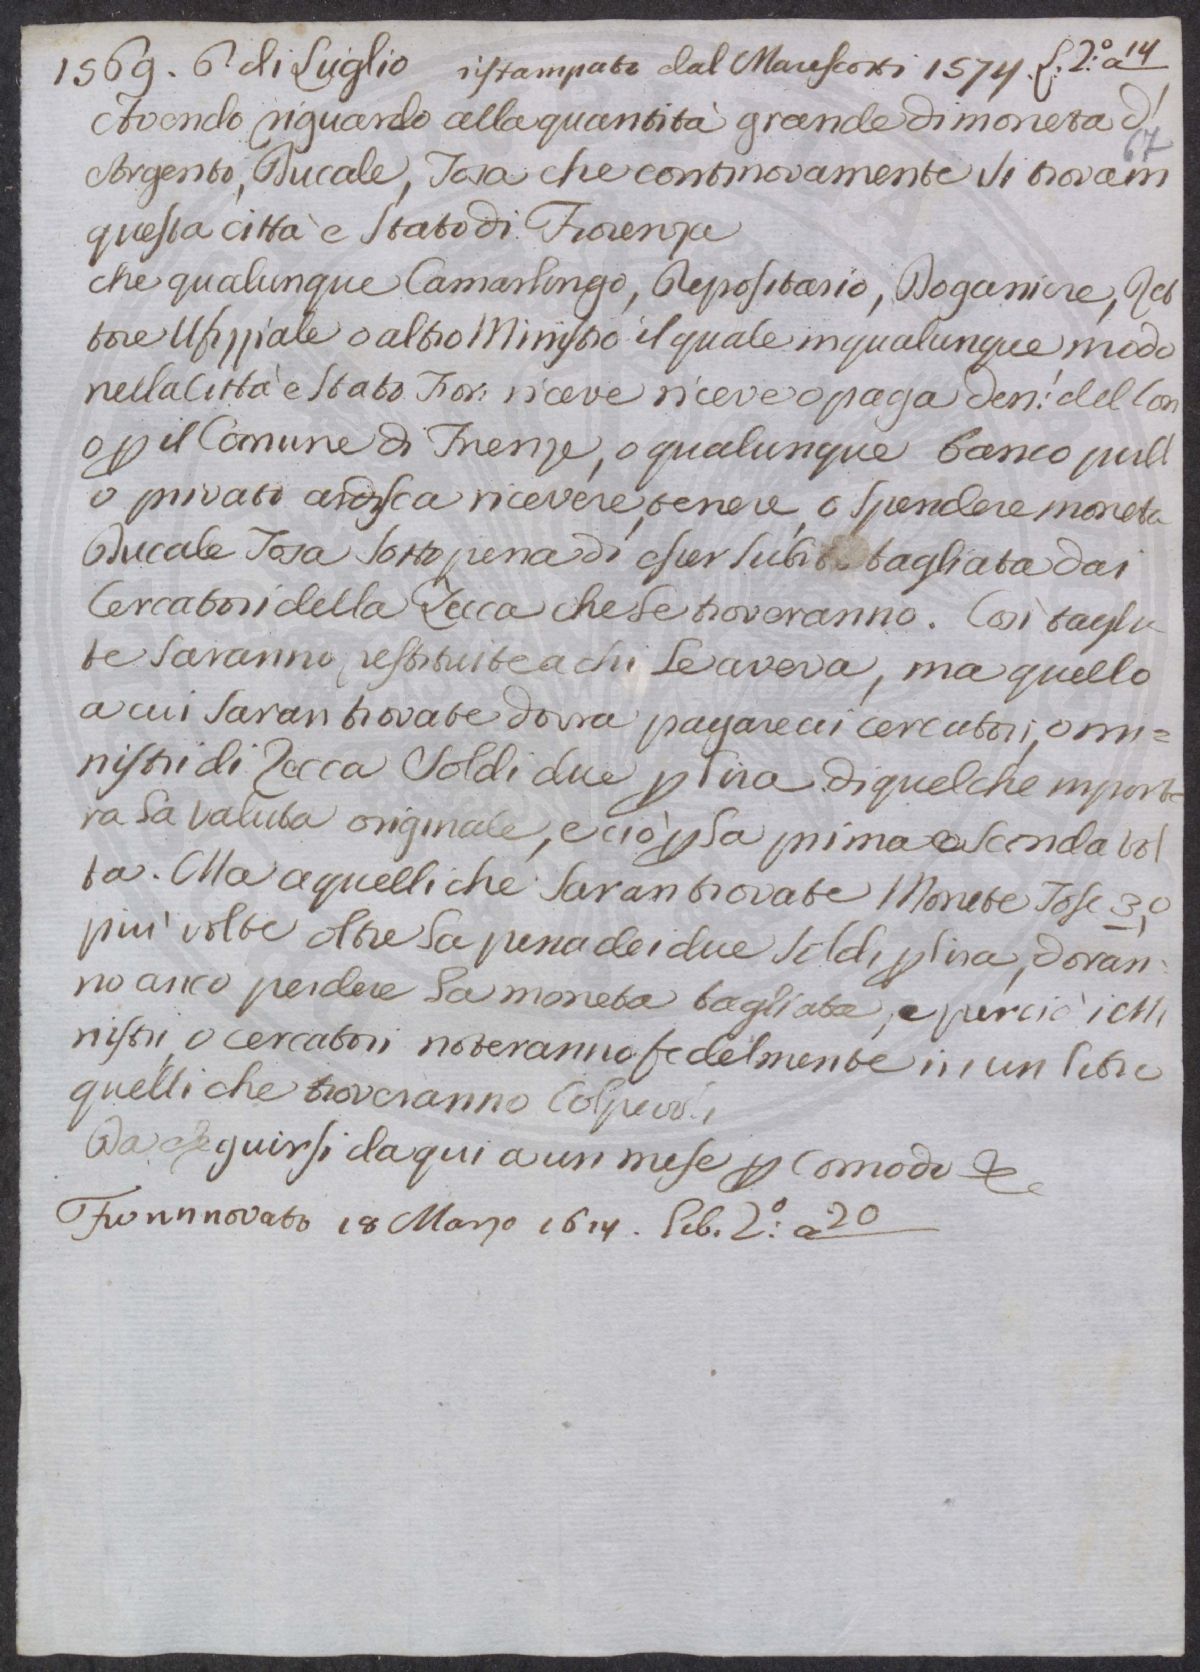 1569. 6 di Luglio ristampato dal Marescotti 1574. L. 2.º a 14
Avendo riguardo alla quantità grande di moneta d'
67
Argento, Ducale, Tosa che continovamente si trova in
questa città e Stato di Fiorenza
che qualunque Camarlingo, Depositario, Doganiere, Ret
tore Ufizziale o altro Ministro il quale in qualunque modo
nella Città e Stato Fior: riceve riceve o paga den: del Com
o p il Comune di Firenze, o qualunque banco pubb
o privato ardisca ricevere, tenere, o spendere moneta
Ducale Tosa sotto pena di esser subito tagliata dai
Cercatori della Zecca che le troveranno. Così taglia
te saranno restituite a chi le aveva, ma quello
a cui saran trovate dovra pagare ai cercatori, o mi=
nistri di Zecca Soldi due p lira di quel che importe
ra la valuta originale, e ciò p la prima e seconda vol
ta. Ma a quelli che saran trovate Monete Tose 3, o
più volte oltre la pena dei due soldi p lira, doran:
no anco perdere la moneta tagliata, e perciò i Mi
nistri, o cercatori noteranno fedelmente in un libro
quelli che troveranno Colpevoli
Da eseguirsi da qui a un mese p comodo &c
Fu rinnovato 18 Marzo 1614. Lib. 2.º: a 20